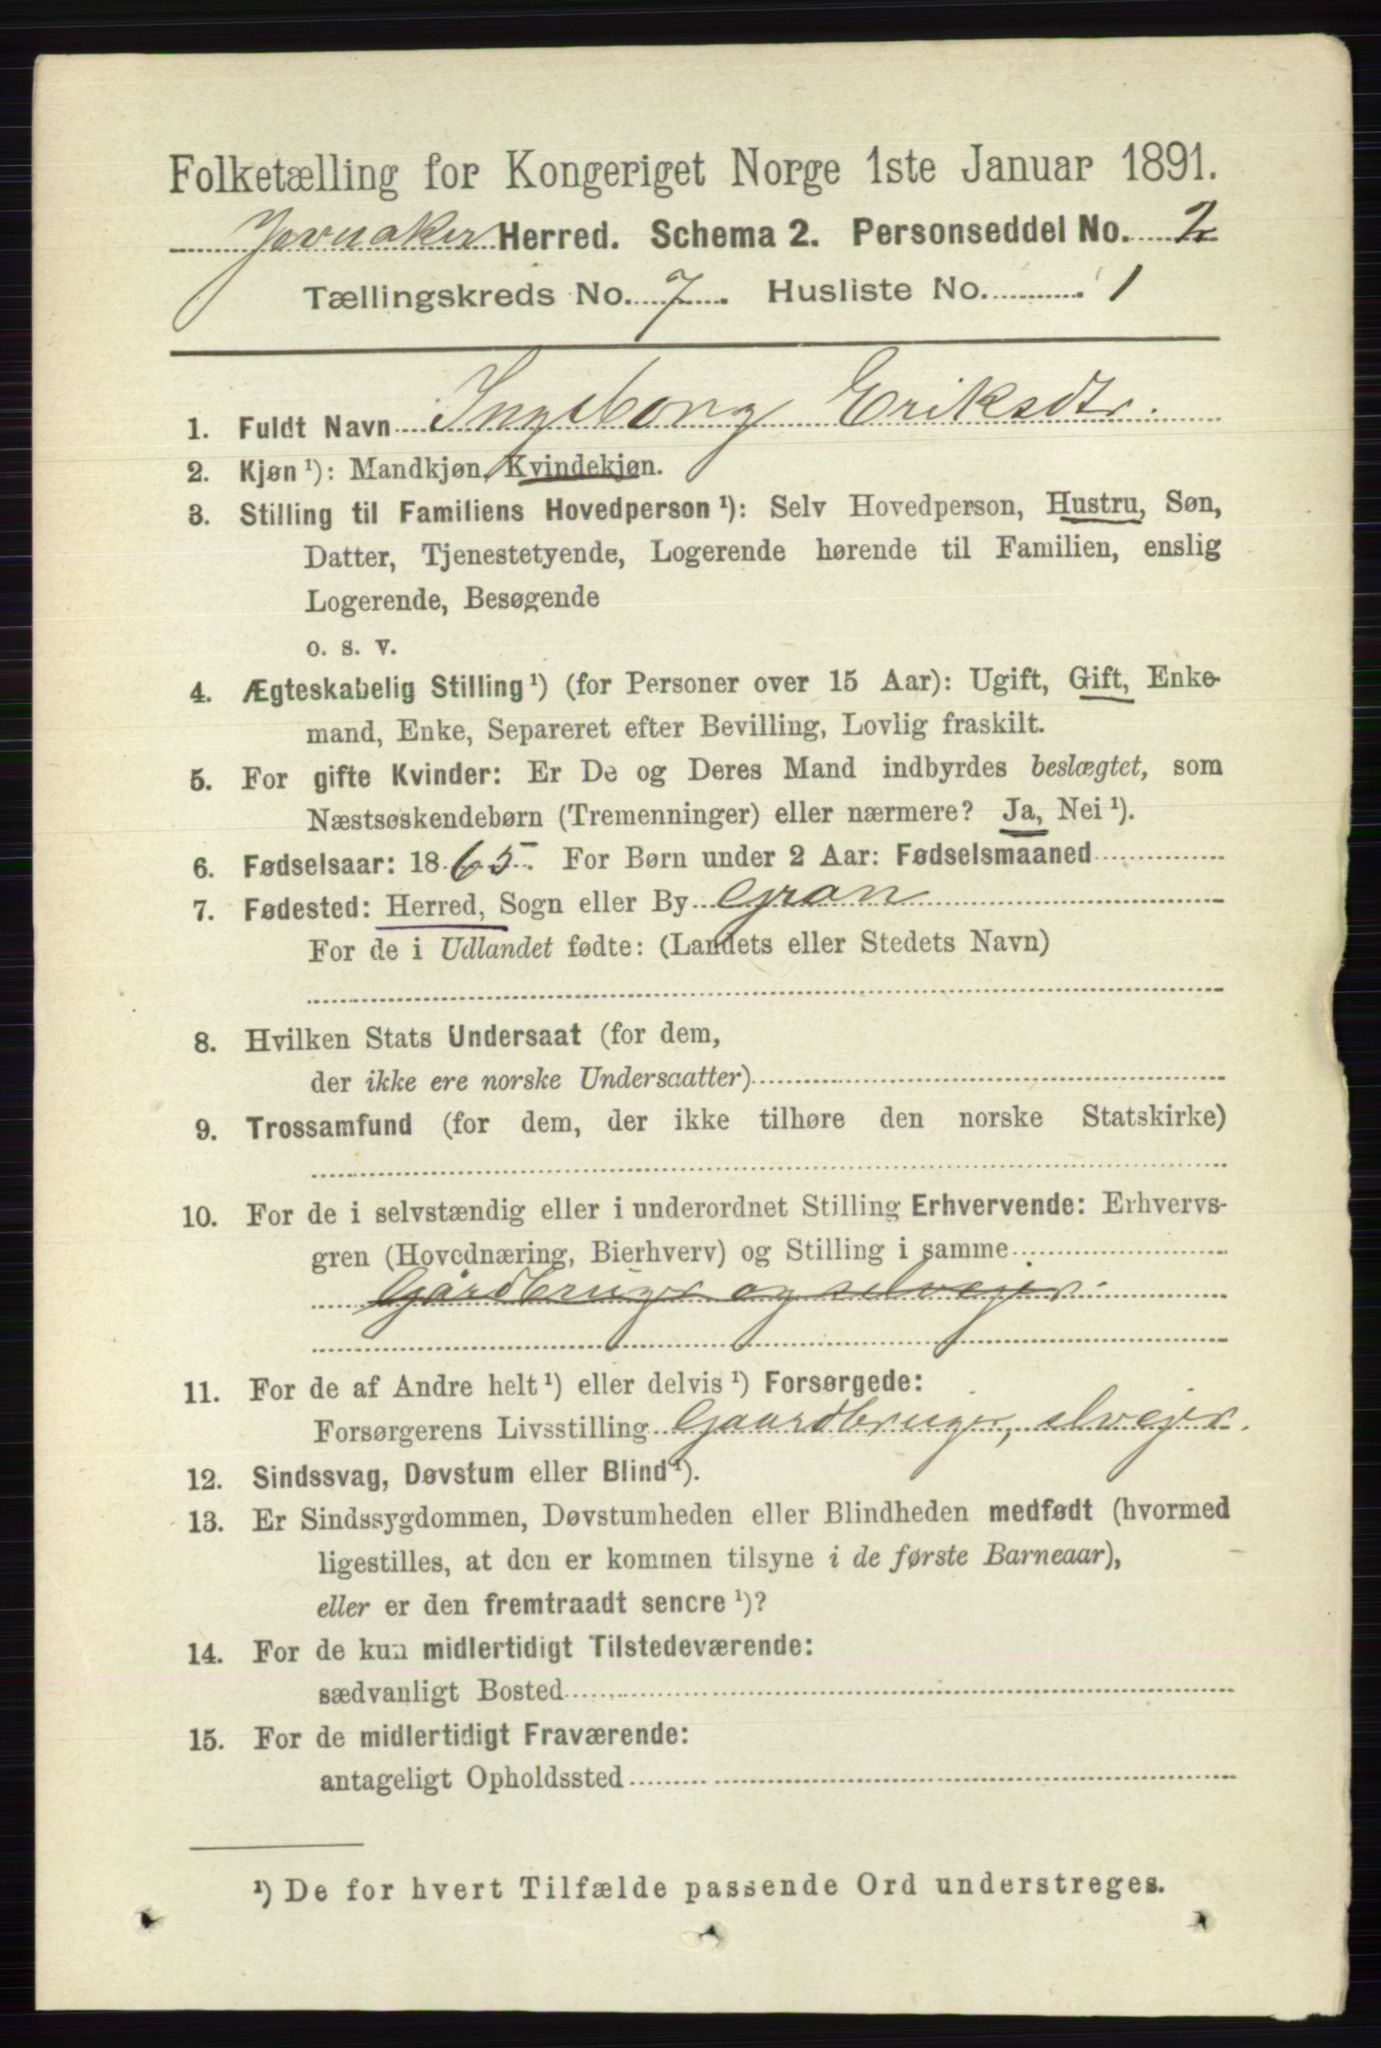 Folketælling for Kongeriget Norge 1ste Januar 1891.
Jevnaker Herred. Schema 2. Personseddel No. 2
Tællingskreds No. 7. Husliste No. 1
1. Fuldt Navn Ingeborg Eriksdtr.
2. Kjøn ¹): Mandkjøn, Kvindekjøn.
3. Stilling til Familiens Hovedperson ¹): Selv Hovedperson, Hustru, Søn,
Datter, Tjenestetyende, Logerende hørende til Familien, enslig
Logerende, Besøgende
o. s. v.
4. Ægteskabelig Stilling ¹) (for Personer over 15 Aar): Ugift, Gift, Enke-
mand, Enke, Separeret efter Bevilling, Lovlig fraskilt.
5. For gifte Kvinder: Er De og Deres Mand indbyrdes beslægtet, som
Næstsøskendebørn (Tremenninger) eller nærmere? Ja, Nei ¹).
6. Fødselsaar: 1865 For Børn under 2 Aar: Fødselsmaaned
7. Fødested: Herred, Sogn eller By Gran
For de i Udlandet fødte: (Landets eller Stedets Navn)
8. Hvilken Stats Undersaat (for dem,
der ikke ere norske Undersaatter)
9. Trossamfund (for dem, der ikke tilhøre den norske Statskirke)
10. For de i selvstændig eller i underordnet Stilling Erhvervende: Erhvervs-
gren (Hovednæring, Bierhverv) og Stilling i samme
Gårdbruger og selvejer.
11. For de af Andre helt ¹) eller delvis ¹) Forsørgede:
Forsørgerens Livsstilling Gaardbruger, selvejer.
12. Sindssvag, Døvstum eller Blind ¹).
13. Er Sindssygdommen, Døvstumheden eller Blindheden medfødt (hvormed
ligestilles, at den er kommen tilsyne i de første Barneaar),
eller er den fremtraadt senere ¹)?
14. For de kun midlertidigt Tilstedeværende:
sædvanligt Bosted
15. For de midlertidigt Fraværende:
antageligt Opholdssted
¹) De for hvert Tilfælde passende Ord understreges.